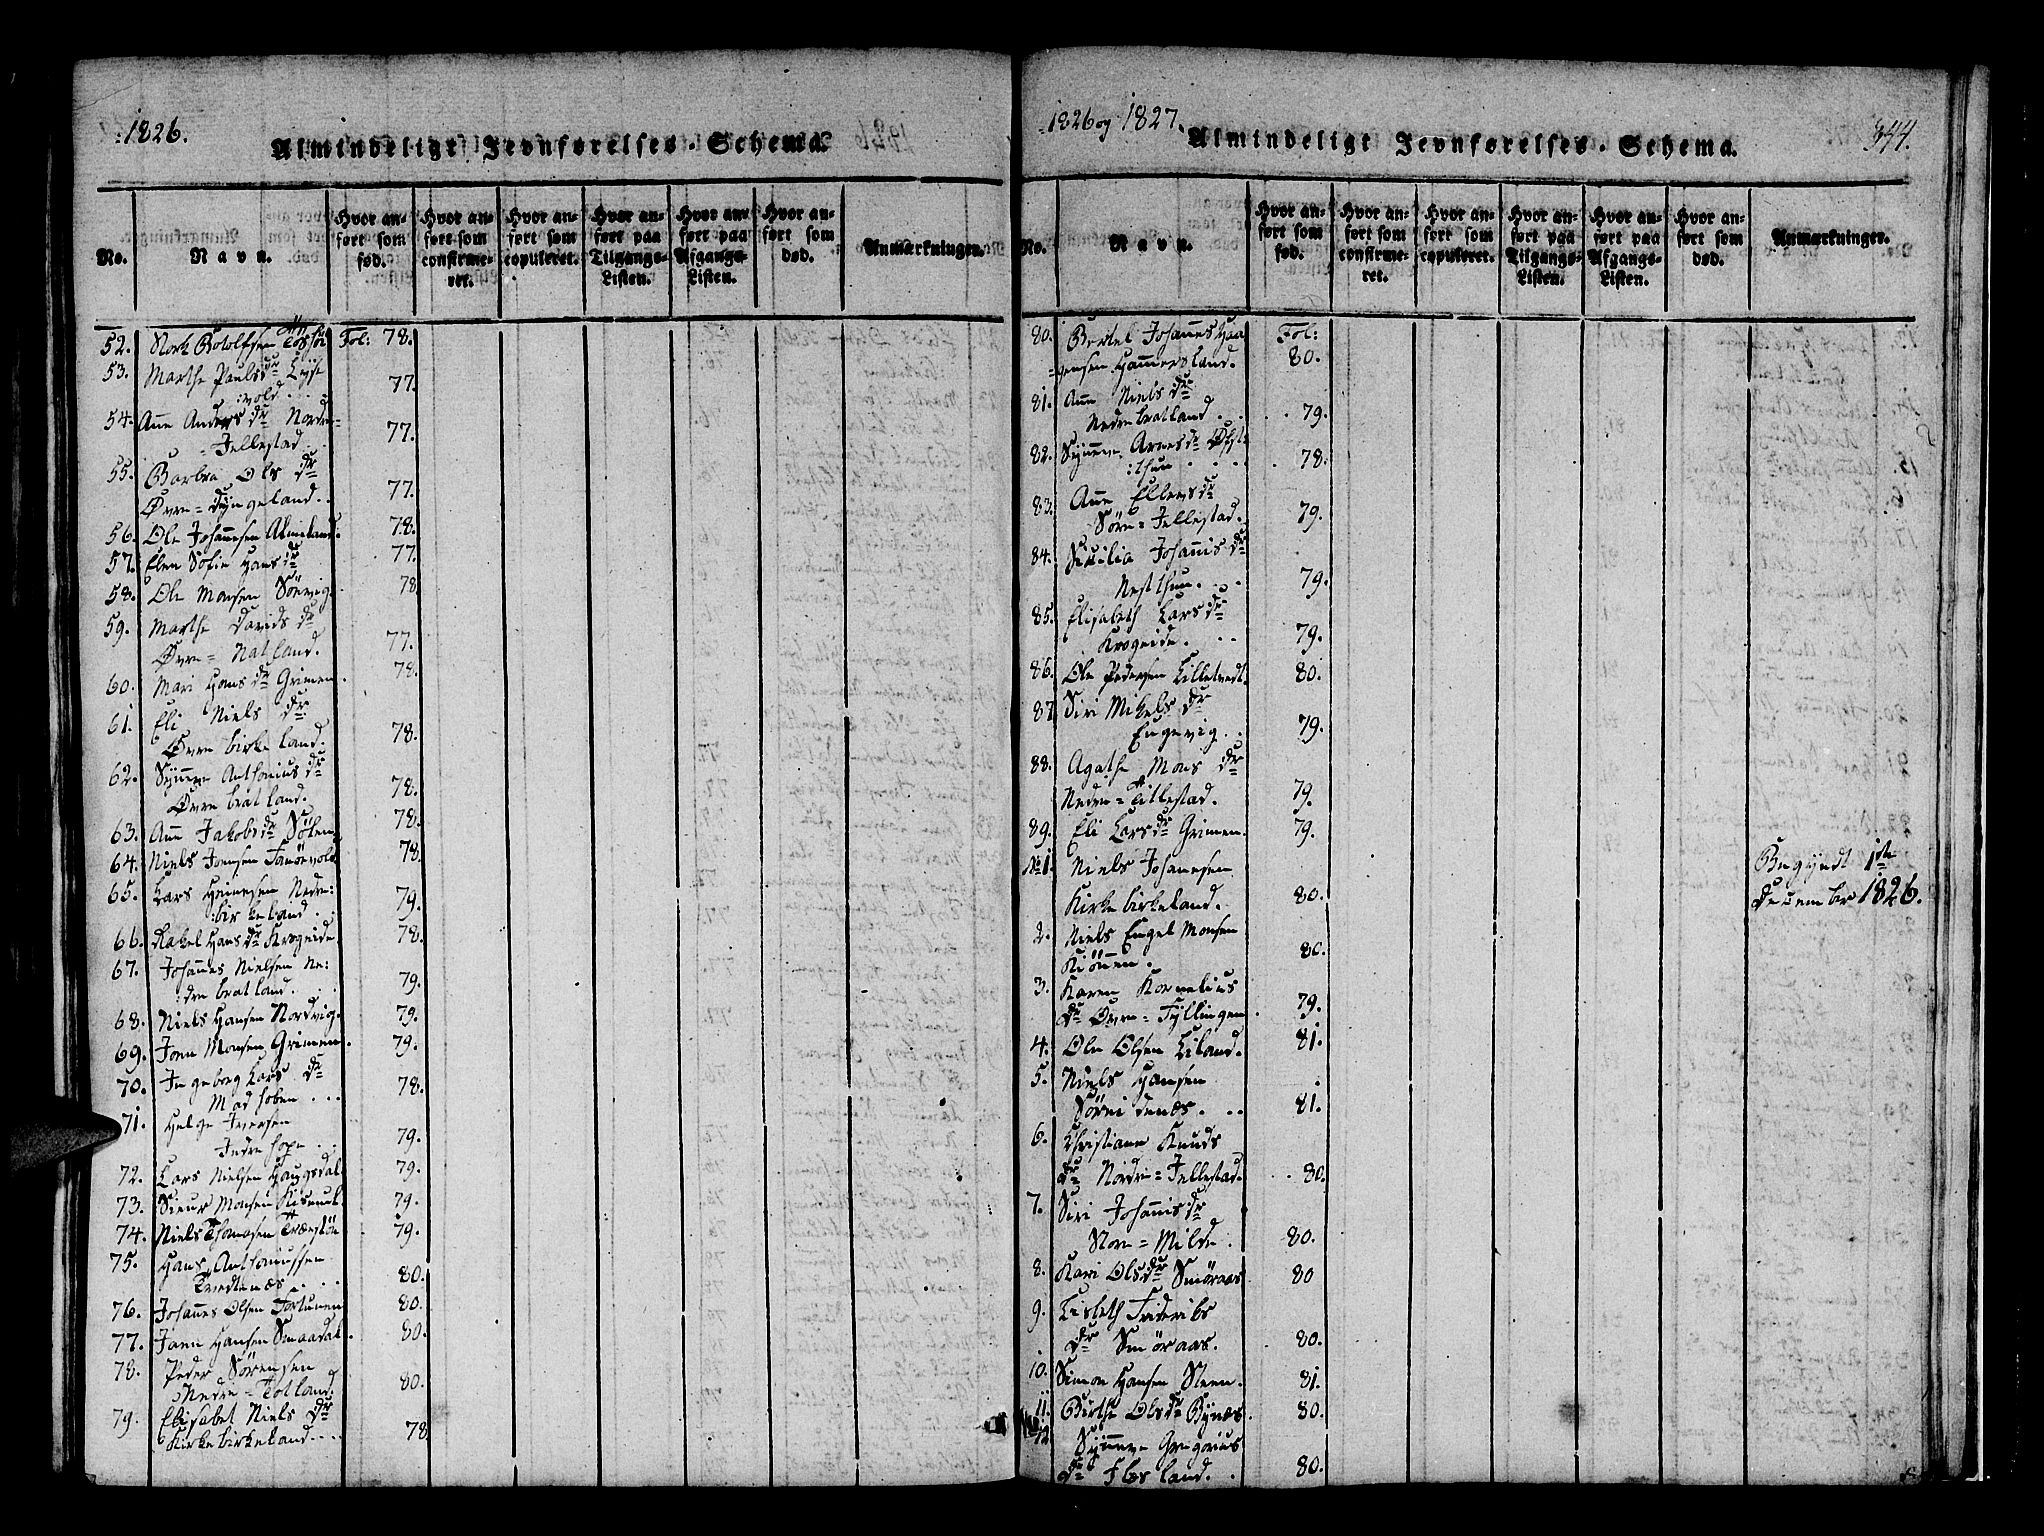 1826.
Almindeligt Jevnførelses-Schema.
No.
Navn.
Hvor anført som fød.
Hvor anført som confirmeret.
Hvor anført som copuleret.
Hvor anført paa Tilgangs-Listen.
Hvor anført paa Afgangs-Listen.
Hvor anført som død.
Anmærkninger.
52. Botolfsen Fol: 78.
53. Marthe Pauls dr Lyse
:vold . . . 77.
54. Ane Anders dr Nordre=
=Jellestad . . 77.
55. Barbra Ols dr
Øvre=Dyngeland . . 77.
56. Ole Johannesen Almeland. 78.
57. Elen Sofie Hans dr 77.
58. Ole Monsen Sörvig. 78
59. Marthe Davids dr
Øvre=Natland. 77.
60. Mari Hans dr Grimen. 78.
61. Eli Niels dr
Øvre birkeland. 78.
62. Synneve Anthonius dr
Øvre bratland. 78.
63. Ane Jakobs dr Sölen 78.
64. Niels Joensen 78.
65. Lars Heinesen Nedre:
:birkeland . . 79.
66. Rakel Hans dr Krogeide. 78.
67. Johannes Nielsen Ne:
:dre bratland. . . 79.
68. Niels Hansen Nordvig. 79.
69. Joen Monsen Grimen. 79.
70. Ingeborg Lars dr
Madhoben . . . 78.
71. Helge Iversen
Indre hope . . 79.
72. Lars Nielsen Haugsdal 79.
73. Sieur Monsen 79.
74. Niels Thomasen 79.
75. Hans Anthoniussen
Tvedtenæs . . . 80.
76. Johannes Olsen Fortunen 80.
77. Jonn Hansen Smaadal. 80.
78. Peder Sörensen
Nedre=Totland. 80.
79. Elisabet Niels dr
Kirkebirkeland . . . . 78
1826 og 1827.
Almindeligt Jevnførelses-Schema.
344.
No.
Navn.
Hvor anført som fød.
Hvor anført som confirmeret.
Hvor anført som copuleret.
Hvor anført paa Tilgangs-Listen.
Hvor anført paa Afgangs-Listen.
Hvor anført som død.
Anmærkninger.
80. Bertel Johannes Haa Fol:
=gensen Hammersland. 80.
81. Ane Niels dr
Nedre bratland . . . . 79.
82. Synneve Arnes dr Øfst:
:thun . . . . 78.
83. Ane Ellens dr
Söre=Jellestad. 79.
84. Sicilia Johannis dr
Nestthun. . . . 79.
85. Elisabeth Lars dr
Krogeide. . . 79.
86. Ole Pedersen Lilletvedt. 80.
87 Siri Mikels dr
Eugevig . . 79.
88. Agathe Mons dr
Nedre=Titlestad. 79.
89. Eli Lars dr Grimen. 79.
No 1. Niels Johannesen
Kirkebirkeland. 80. Begyndt 1ste
December 1826.
2. Niels Engel Monsen
Kiönnen. 80.
3. Karen Kornelius
dr Øvre=Fyllingen. 79.
4. Ole Olsen Liland. 81.
5. Niels Hansen
Söreidenæs. . . 81.
6. Christiane Knuds
dr Nordre=Jellestad. . . 80.
7. Siri Johannis dr
Store=Milde. 80.
8. Kari Ols dr Smöraas 80
9. Lisbeth Frideriks
dr Smöraas. 80.
10. Simon Hansen Steen. 81.
11. Birthe Ols dr Bynæs. 80.
12 Synneve Gregorius
dr Flesland. . 80.